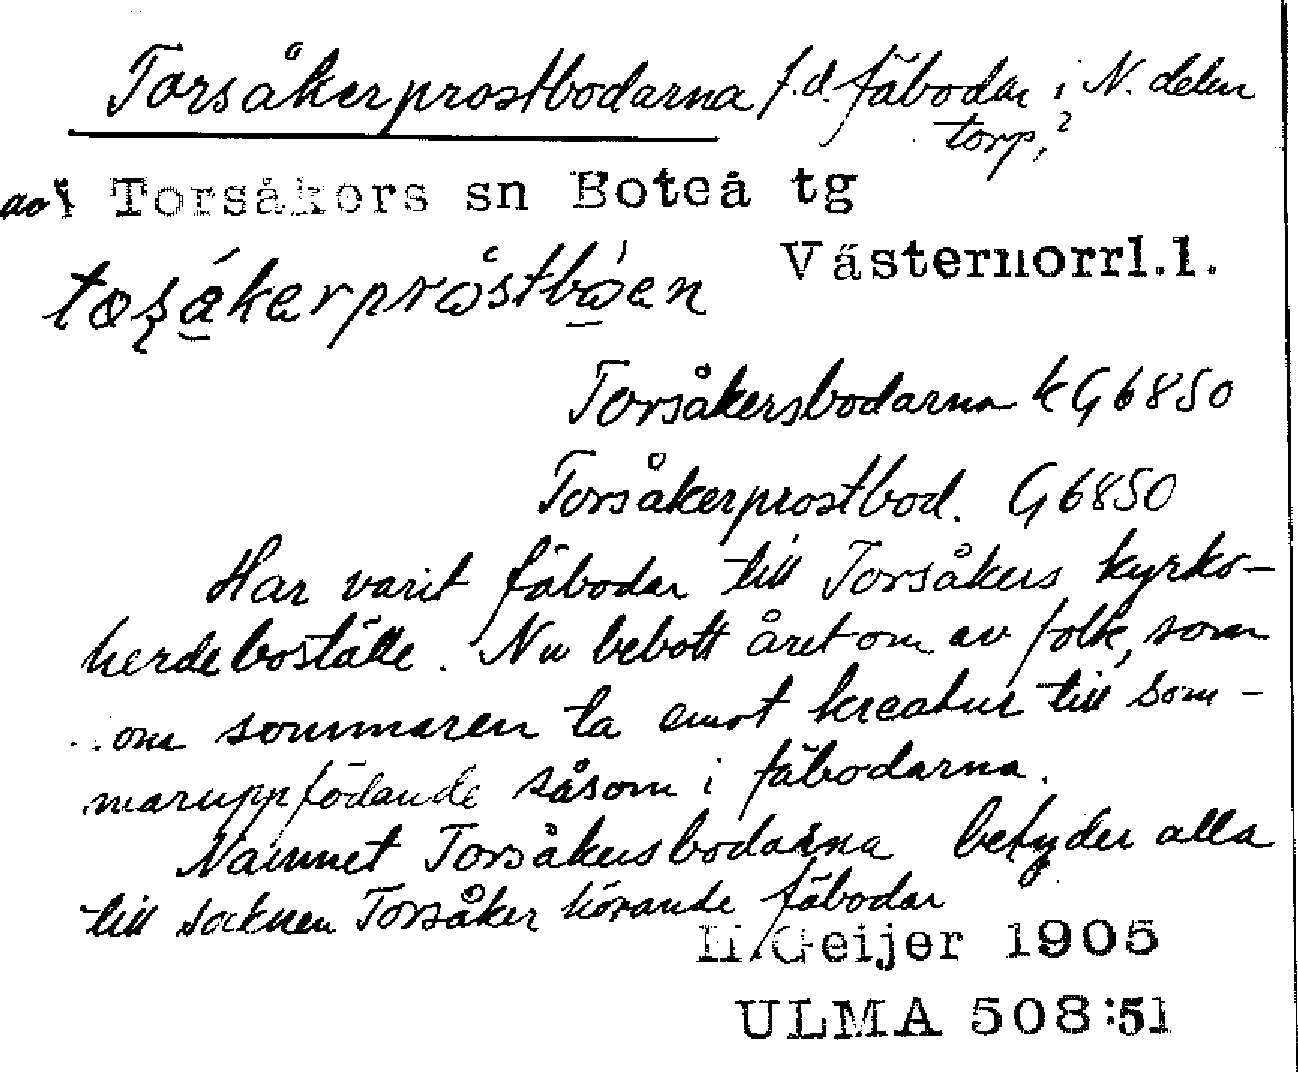 Torsåkerprostbodarna f.d. fäbodar i N. delen
torp,?
av i Torsåkers sn Boteå tg
Västernorrl.l.
Torsåkersbodarna k G6850
Torsåkerprostbod. G6850
Har varit fäbodar till Torsåkers kyrko-
herdeboställe. Nu bebott året om av folk, som
om sommaren ta emot kreatur till som-
maruppfödande såsom i fäbodarna.
Namnet Torsåkersbodarna betyder alla
till socknen Torsåker hörande fäbodar
H. Geijer 1905
ULMA 508:51